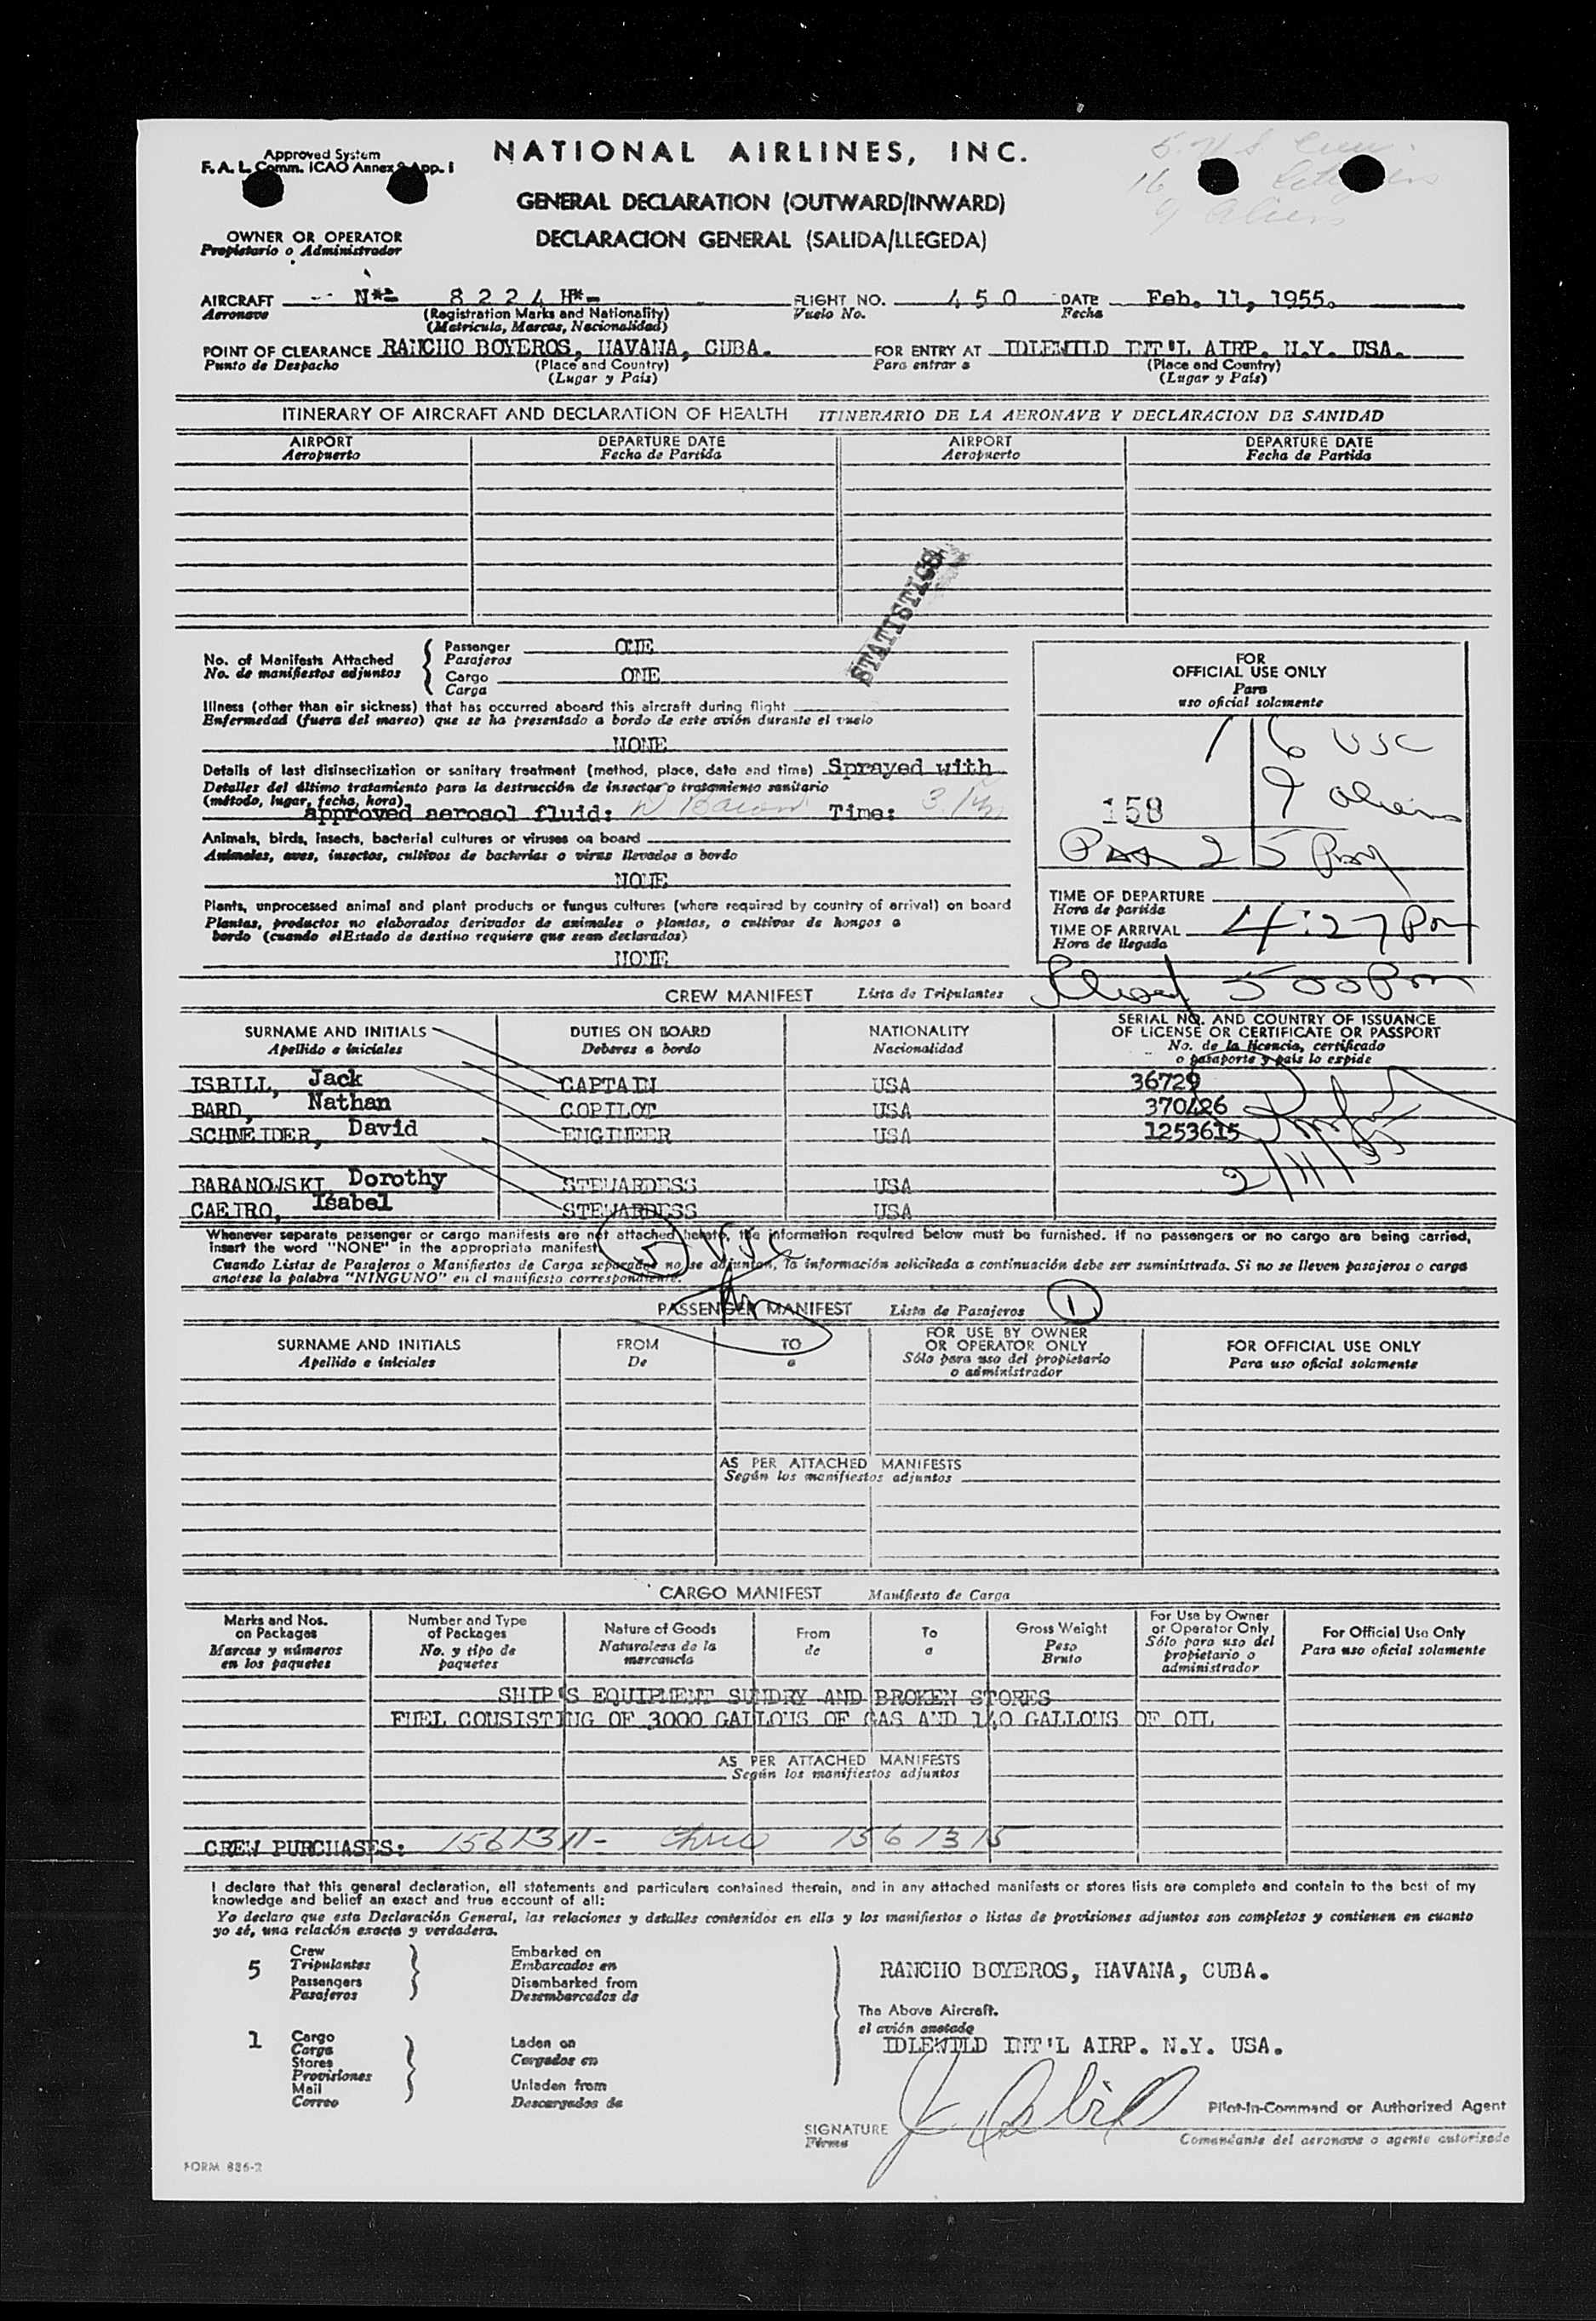 Approved System
F. A. L. Comm. ICAO Annex 9 App. I
NATIONAL AIRLINES, INC.
16
9 Aliens
GENERAL DECLARATION (OUTWARD/INWARD)
DECLARACION GENERAL (SALIDA/LLEGEDA)
OWNER OR OPERATOR
Propietario o Administrador
AIRCRAFT N*= 8 2 2 4 H*= FLIGHT NO. 4 5 0 DATE Feb. 11, 1955.
Aeronave (Registration Marks and Nationality) Vuelo No. Fecha
(Matricula, Marcas, Nacionalidad)
POINT OF CLEARANCE RANCHO BOYEROS, HAVANA, CUBA. FOR ENTRY AT IDLEWILD INT'L AIRP. N.Y. USA.
Punto de Despacho (Place and Country) Para entrar a (Place and Country)
(Lugar y País) (Lugar y País)
ITINERARY OF AIRCRAFT AND DECLARATION OF HEALTH ITINERARIO DE LA AERONAVE Y DECLARACION DE SANIDAD
AIRPORT DEPARTURE DATE AIRPORT DEPARTURE DATE
Aeropuerto Fecha de Partida Aeropuerto Fecha de Partida
STATISTICS
No. of Manifests Attached
No. de manifiestos adjuntos
Passenger ONE
Pasajeros
Cargo ONE
Carga
Illness (other than air sickness) that has occurred aboard this aircraft during flight
Enfermedad (fuera del mareo) que se ha presentado a bordo de este avión durante el vuelo
NONE
Details of last disinsectization or sanitary treatment (method, place, date and time) Sprayed with
Detalles del último tratamiento para la destrucción de insectos o tratamiento sanitario
(método, lugar, fecha, hora)
approved aerosol fluid: Time:
Animals, birds, insects, bacterial cultures or viruses on board
Animales, aves, insectos, cultivos de bacterias o virus llevados a bordo
NONE
Plants, unprocessed animal and plant products or fungus cultures (where required by country of arrival) on board
Plantas, productos no elaborados derivados de animales o plantas, o cultivos de hongos a
bordo (cuando el Estado de destino requiere que sean declarados)
NONE
FOR
OFFICIAL USE ONLY
Para
uso oficial solamente
16 USC
9 aliens
158
25
TIME OF DEPARTURE
Hora de partida
TIME OF ARRIVAL 4:27 Pm
Hora de llegada
500 Pm
CREW MANIFEST Lista de Tripulantes
SURNAME AND INITIALS DUTIES ON BOARD NATIONALITY SERIAL NO. AND COUNTRY OF ISSUANCE
OF LICENSE OR CERTIFICATE OR PASSPORT
Apellido e iniciales Deberes a bordo Nacionalidad No. de la licencia, certificado
o pasaporte y país lo expide
ISBILL, Jack CAPTAIN USA 36729
BARD, Nathan COPILOT USA 370426
SCHNEIDER, David ENGINEER USA 1253615
BARANOWSKI Dorothy STEWARDESS USA 2/11/55
CAEIRO, Isabel STEWARDESS USA
Whenever separate passenger or cargo manifests are not attached hereto, the information required below must be furnished. If no passengers or no cargo are being carried,
insert the word "NONE" in the appropriate manifest.
5 USC
Cuando Listas de Pasajeros o Manifiestos de Carga separados no se adjuntan, la información solicitada a continuación debe ser suministrada. Si no se lleven pasajeros o carga
anotese la palabra "NINGUNO" en el manifiesto correspondiente.
PASSENGER MANIFEST Lista de Pasajeros 1
SURNAME AND INITIALS FROM TO FOR USE BY OWNER
OR OPERATOR ONLY FOR OFFICIAL USE ONLY
Apellido e iniciales De a Sólo para uso del propietario
o administrador Para uso oficial solamente
AS PER ATTACHED MANIFESTS
Según los manifiestos adjuntos
CARGO MANIFEST Manifiesto de Carga
Marks and Nos.
on Packages
Marcas y números
en los paquetes
Number and Type
of Packages
No. y tipo de
paquetes
Nature of Goods
Naturaleza de la
mercancia
From
de
To
a
Gross Weight
Peso
Bruto
For Use by Owner
or Operator Only
Sólo para uso del
propietario o
administrador
For Official Use Only
Para uso oficial solamente
SHIP'S EQUIPMENT SUNDRY AND BROKEN STORES
FUEL CONSISTING OF 3000 GALLONS OF GAS AND 140 GALLONS OF OIL
AS PER ATTACHED MANIFESTS
Según los manifiestos adjuntos
CREW PURCHASES: 1561311- 1561315
I declare that this general declaration, all statements and particulars contained therein, and in any attached manifests or stores lists are complete and contain to the best of my
knowledge and belief an exact and true account of all:
Yo declaro que esta Declaración General, las relaciones y detalles contenidos en ella y los manifiestos o listas de provisiones adjuntos son completos y contienen en cuanto
yo sé, una relación exacta y verdadera.
5 Crew
Tripulantes
Passengers
Pasajeros
Embarked on
Embarcados en
Disembarked from
Desembarcados de
1 Cargo
Carga
Stores
Provisiones
Mail
Correo
Laden on
Cargados en
Unladen from
Descargados de
RANCHO BOYEROS, HAVANA, CUBA.
The Above Aircraft.
el avión anotado
IDLEWILD INT'L AIRP. N.Y. USA.
SIGNATURE J. Isbill Pilot-in-Command or Authorized Agent
Firma Comandante del aeronave o agente autorizado
FORM 886-2